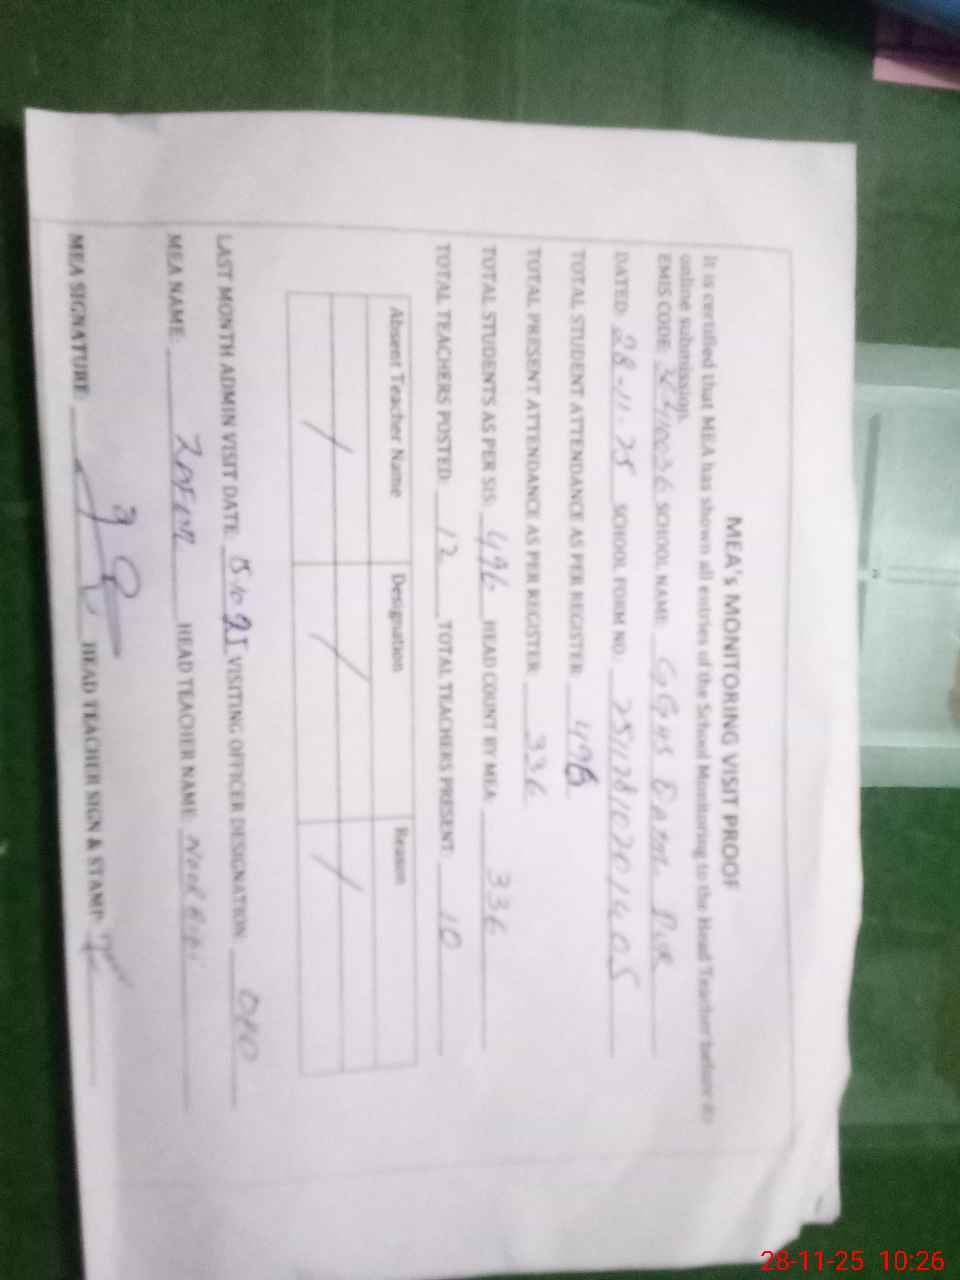 MEA's MONITORING VISIT PROOF
It is certified that MEA has shown all entries of the School Monitoring to the Head Teacher before its
online submission.
EMIS CODE: SCHOOL NAME: GGHS PUR
DATED: 28-11-25 SCHOOL FORM NO:
TOTAL STUDENT ATTENDANCE AS PER REGISTER: 496
TOTAL PRESENT ATTENDANCE AS PER REGISTER: 336
TOTAL STUDENTS AS PER SIS: 496 HEAD COUNT BY MEA: 336
TOTAL TEACHERS POSTED: 12 TOTAL TEACHERS PRESENT: 10
Absent Teacher Name Designation Reason
/ / /
LAST MONTH ADMIN VISIT DATE: VISITING OFFICER DESIGNATION:
MEA NAME: HEAD TEACHER NAME: Noor Bibi
MEA SIGNATURE: HEAD TEACHER SIGN & STAMP:
28-11-25 10:26